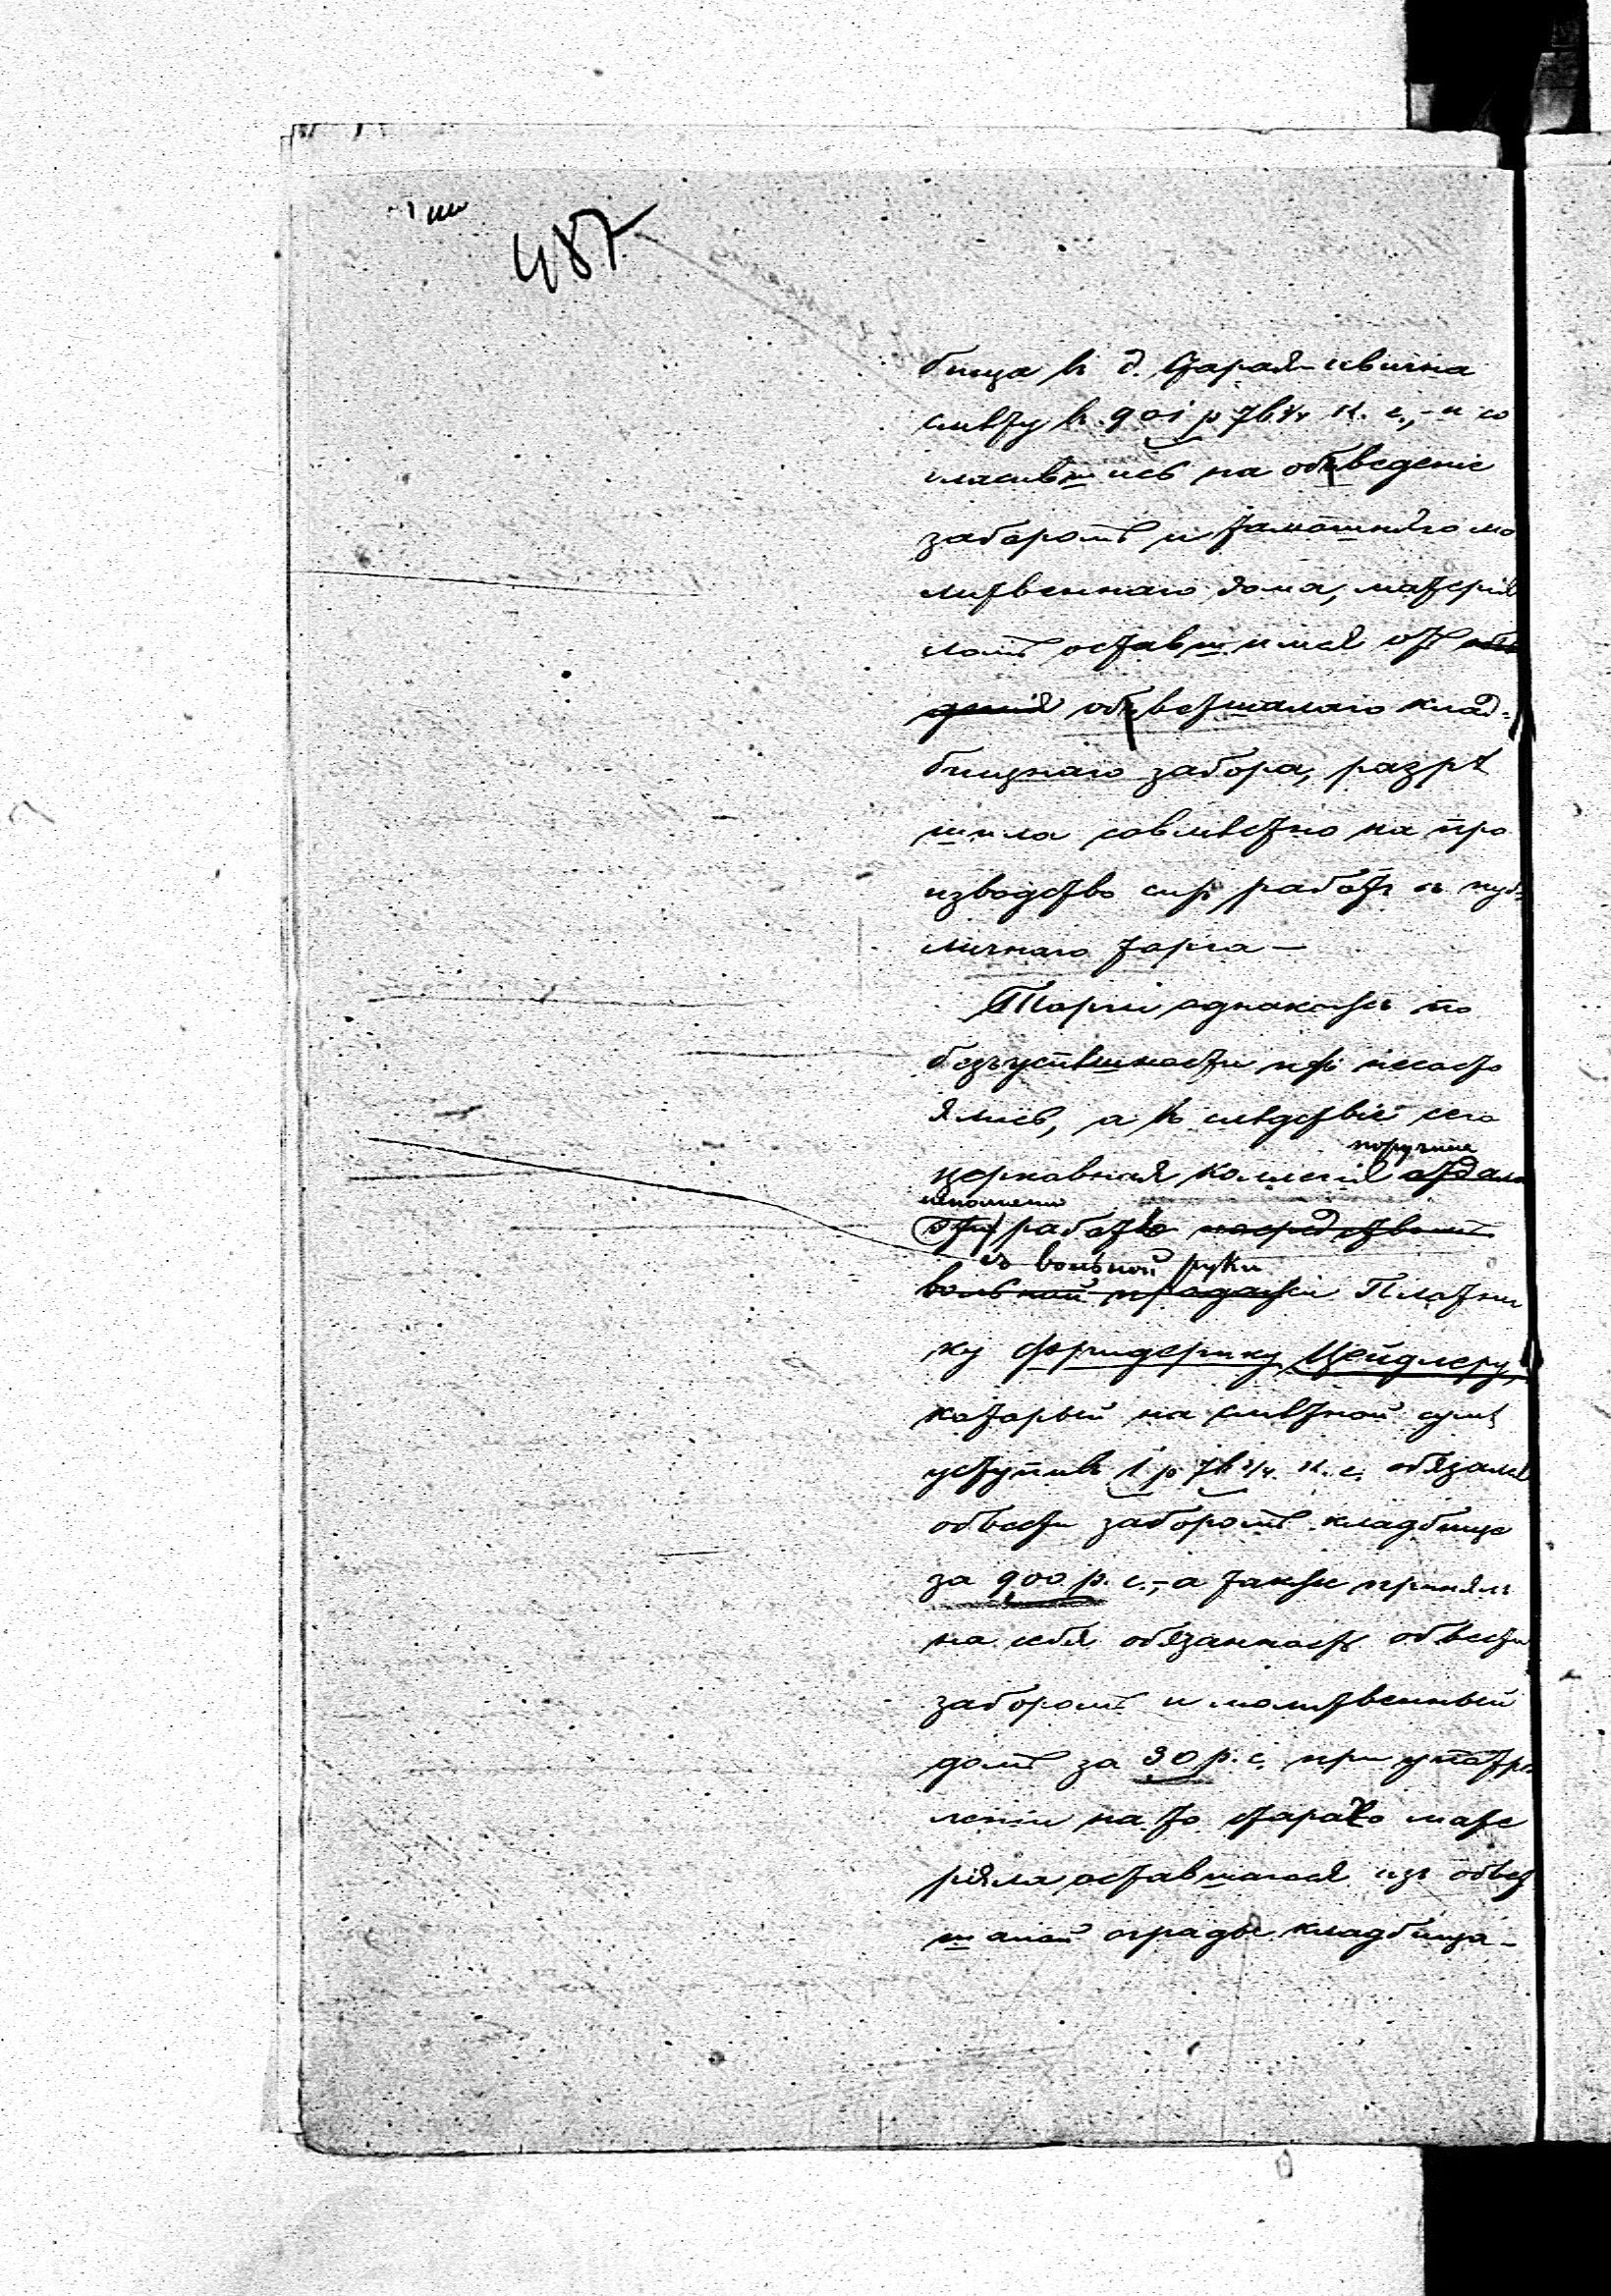 487
бища въ д. Старая-Ивична
смѣту въ 901 р 76¼ к. с., - и со
гласившись на объведеніе
заборомъ и тамошняго мо
литвеннаго дома, матерія
ломъ оставшимся отъ объве
денія объветшалаго клад-
бищнаго забора, разрѣ
шила совмѣстно на про
изводство сихъ работъ съ пуб-
личнаго торга —
Торги однакожъ по
безъуспѣшности ихъ несосто
ялись, а въ слѣдствіе сего
поручила
церковная коллегія отдала
исполненіе
эти работы посредствомъ
съ вольной руки
вольной продажи Плотни
ку Фридерику Цейдлеру,
который на смѣтной сумѣ
уступивъ 1 р 76¼ к. с. обязался
обвести заборомъ кладбище
за 900 р. с., - а также принялъ
на себя обязанность обвести
заборомъ и молитвенный
домъ за 30 р. с. при употреб
леніи на то стараго мате
ріяла оставшагося изъ обвет
шалой ограды кладбища -